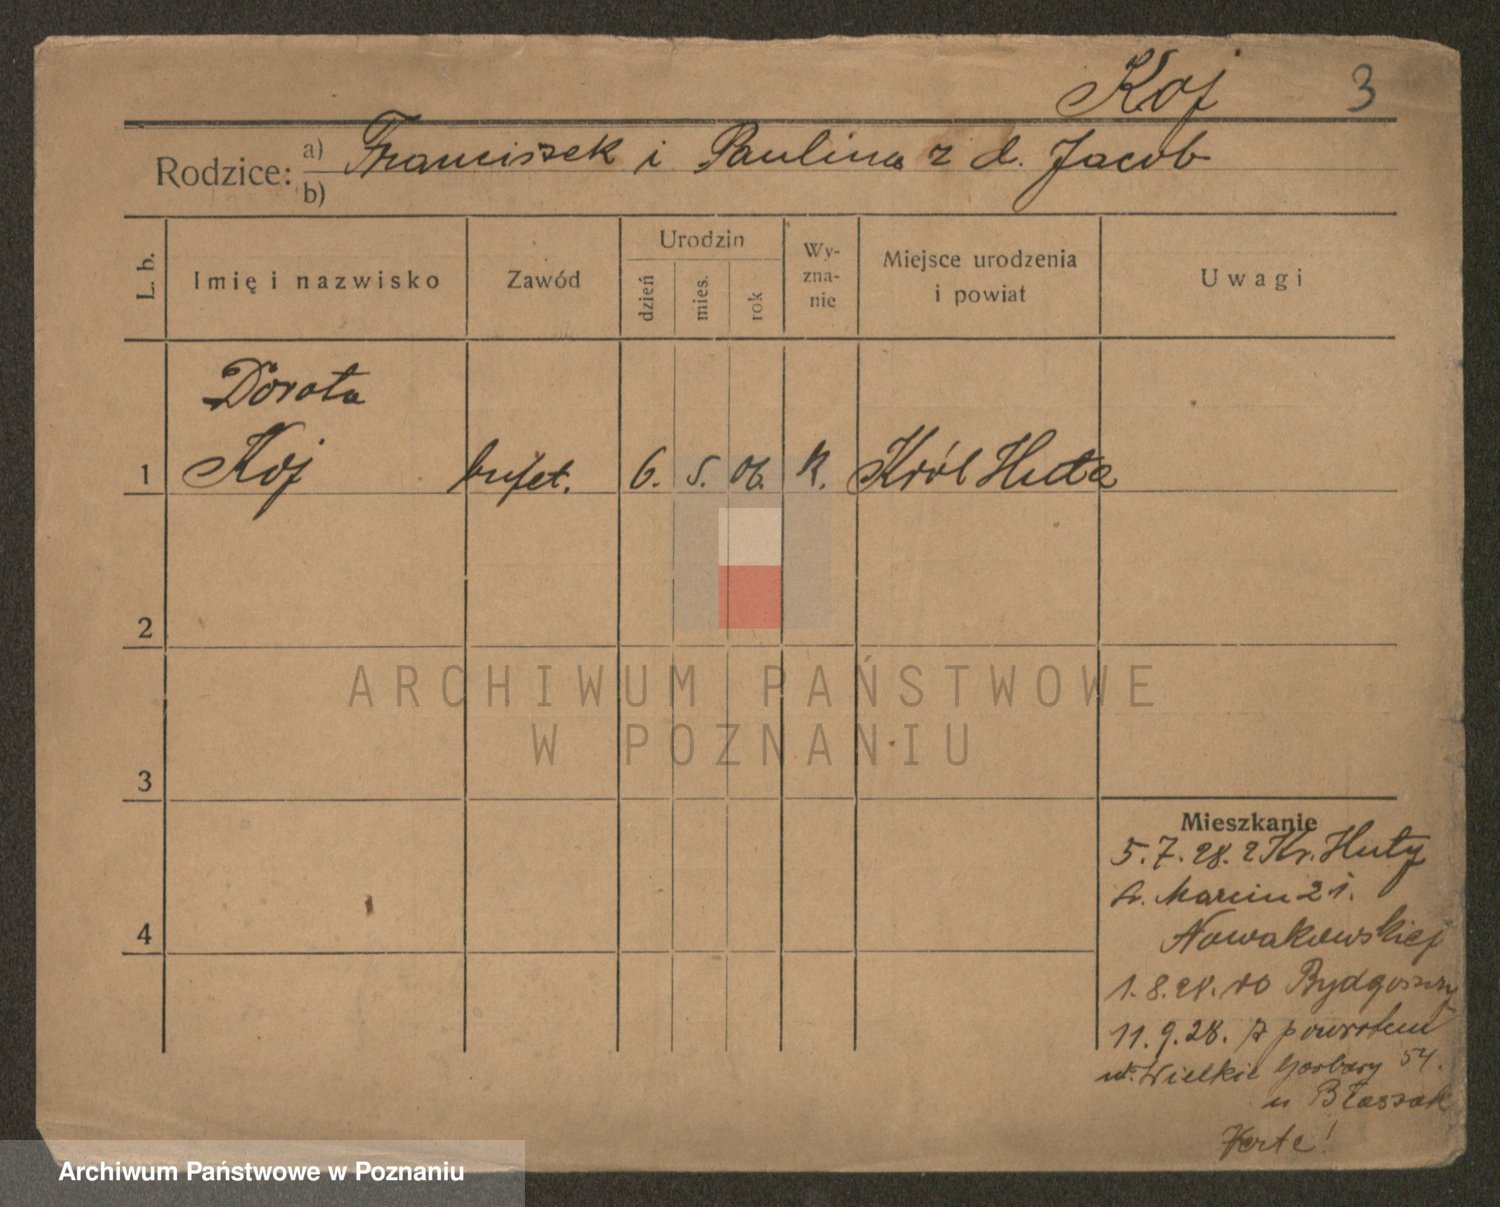 Koj 3
Rodzice: a) Franciszek i Paulina z d. Jacob
b)
L. b. Imię i nazwisko Zawód Urodzin dzień mies. rok Wyznanie Miejsce urodzenia i powiat Uwagi
Dorota
1 Koj bufet. 6. 5. 06. K. Król Huta
2
ARCHIWUM PAŃSTWOWE
W POZNANIU
3
4
Mieszkanie
5.7.28. z Kr. Huty
św. Marcin 21.
Nowakowskiej
1.8.28. do Bydgoszczy
11.9.28. z powrotem
ul. Wielkie Garbary 54.
u Błaszak
Verte!
Archiwum Państwowe w Poznaniu